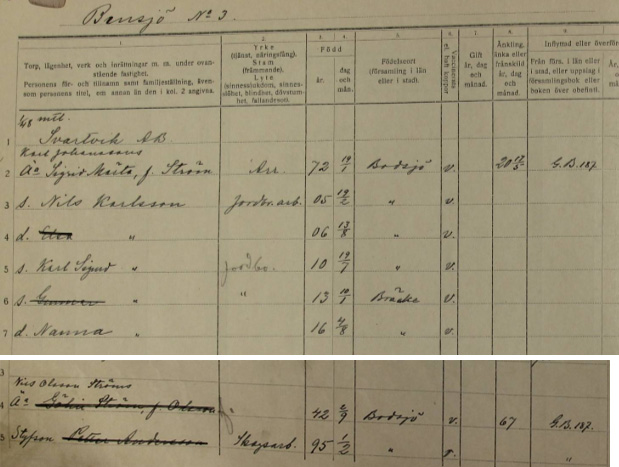 Bensjö No 3.
1. 2. 3. 4. 5. 6. 7. 8.
Torp, lägenhet, verk och inrättningar m. m. under ovanstående fastighet.
Personens för- och tillnamn samt familjeställning, även- som personens titel, om annan än den i kol. 2 angivna.
Yrke
(tjänst, näringsfång).
Stam
(främmande).
Lyte
(sinnesslödhet, blindhet, dövstumhet, fallandesot).
Född
år.
dag och mån.
Födelseort
(församling i län eller i stad).
Gift år, dag och månad.
Änkling, änka eller frånskild år, dag och månad.
Inflyttad eller överförd
Från förs. i län eller i stad, eller uppslag i församlingsbok eller boken över obefintl.
mtl.
1 Svartvik AB
Karl Johanssons
2 Äa Sigrid Märta, f. Ström Arr. 72 19/1 Bodsjö v. 20 G.B.187.
3 s. Nils Karlsson Jordbr.arb. 05 19/2 " v.
4 d. Elsa " 06 13/8 " v.
5 s. Karl Sigurd " Jordbr. 10 19/7 " v.
6 s. Gunnar " " 13 10/1 Bräcke v.
7 d. Nanna " 16 4/8 " v.
3
Nils Olsson Ströms
4 Äa Ström, f. Olsson 42 2/9 Bodsjö v. 67 G.B.187.
5 Styfson Petter Andersson Skogsarb. 95 1/2 " v. "